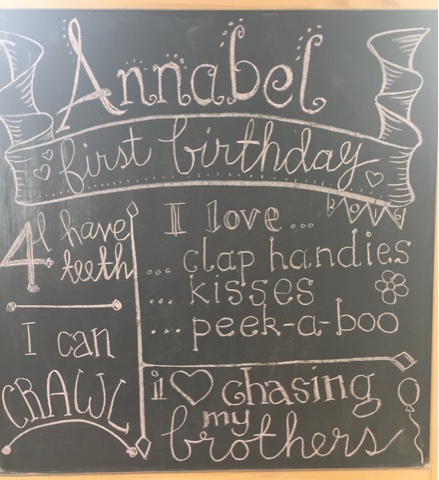 Annabel
first birthday
I have
4 teeth
I can
CRAWL
I love...
... clap handies
... kisses
... peek-a-boo
i ♡ chasing
my
brothers